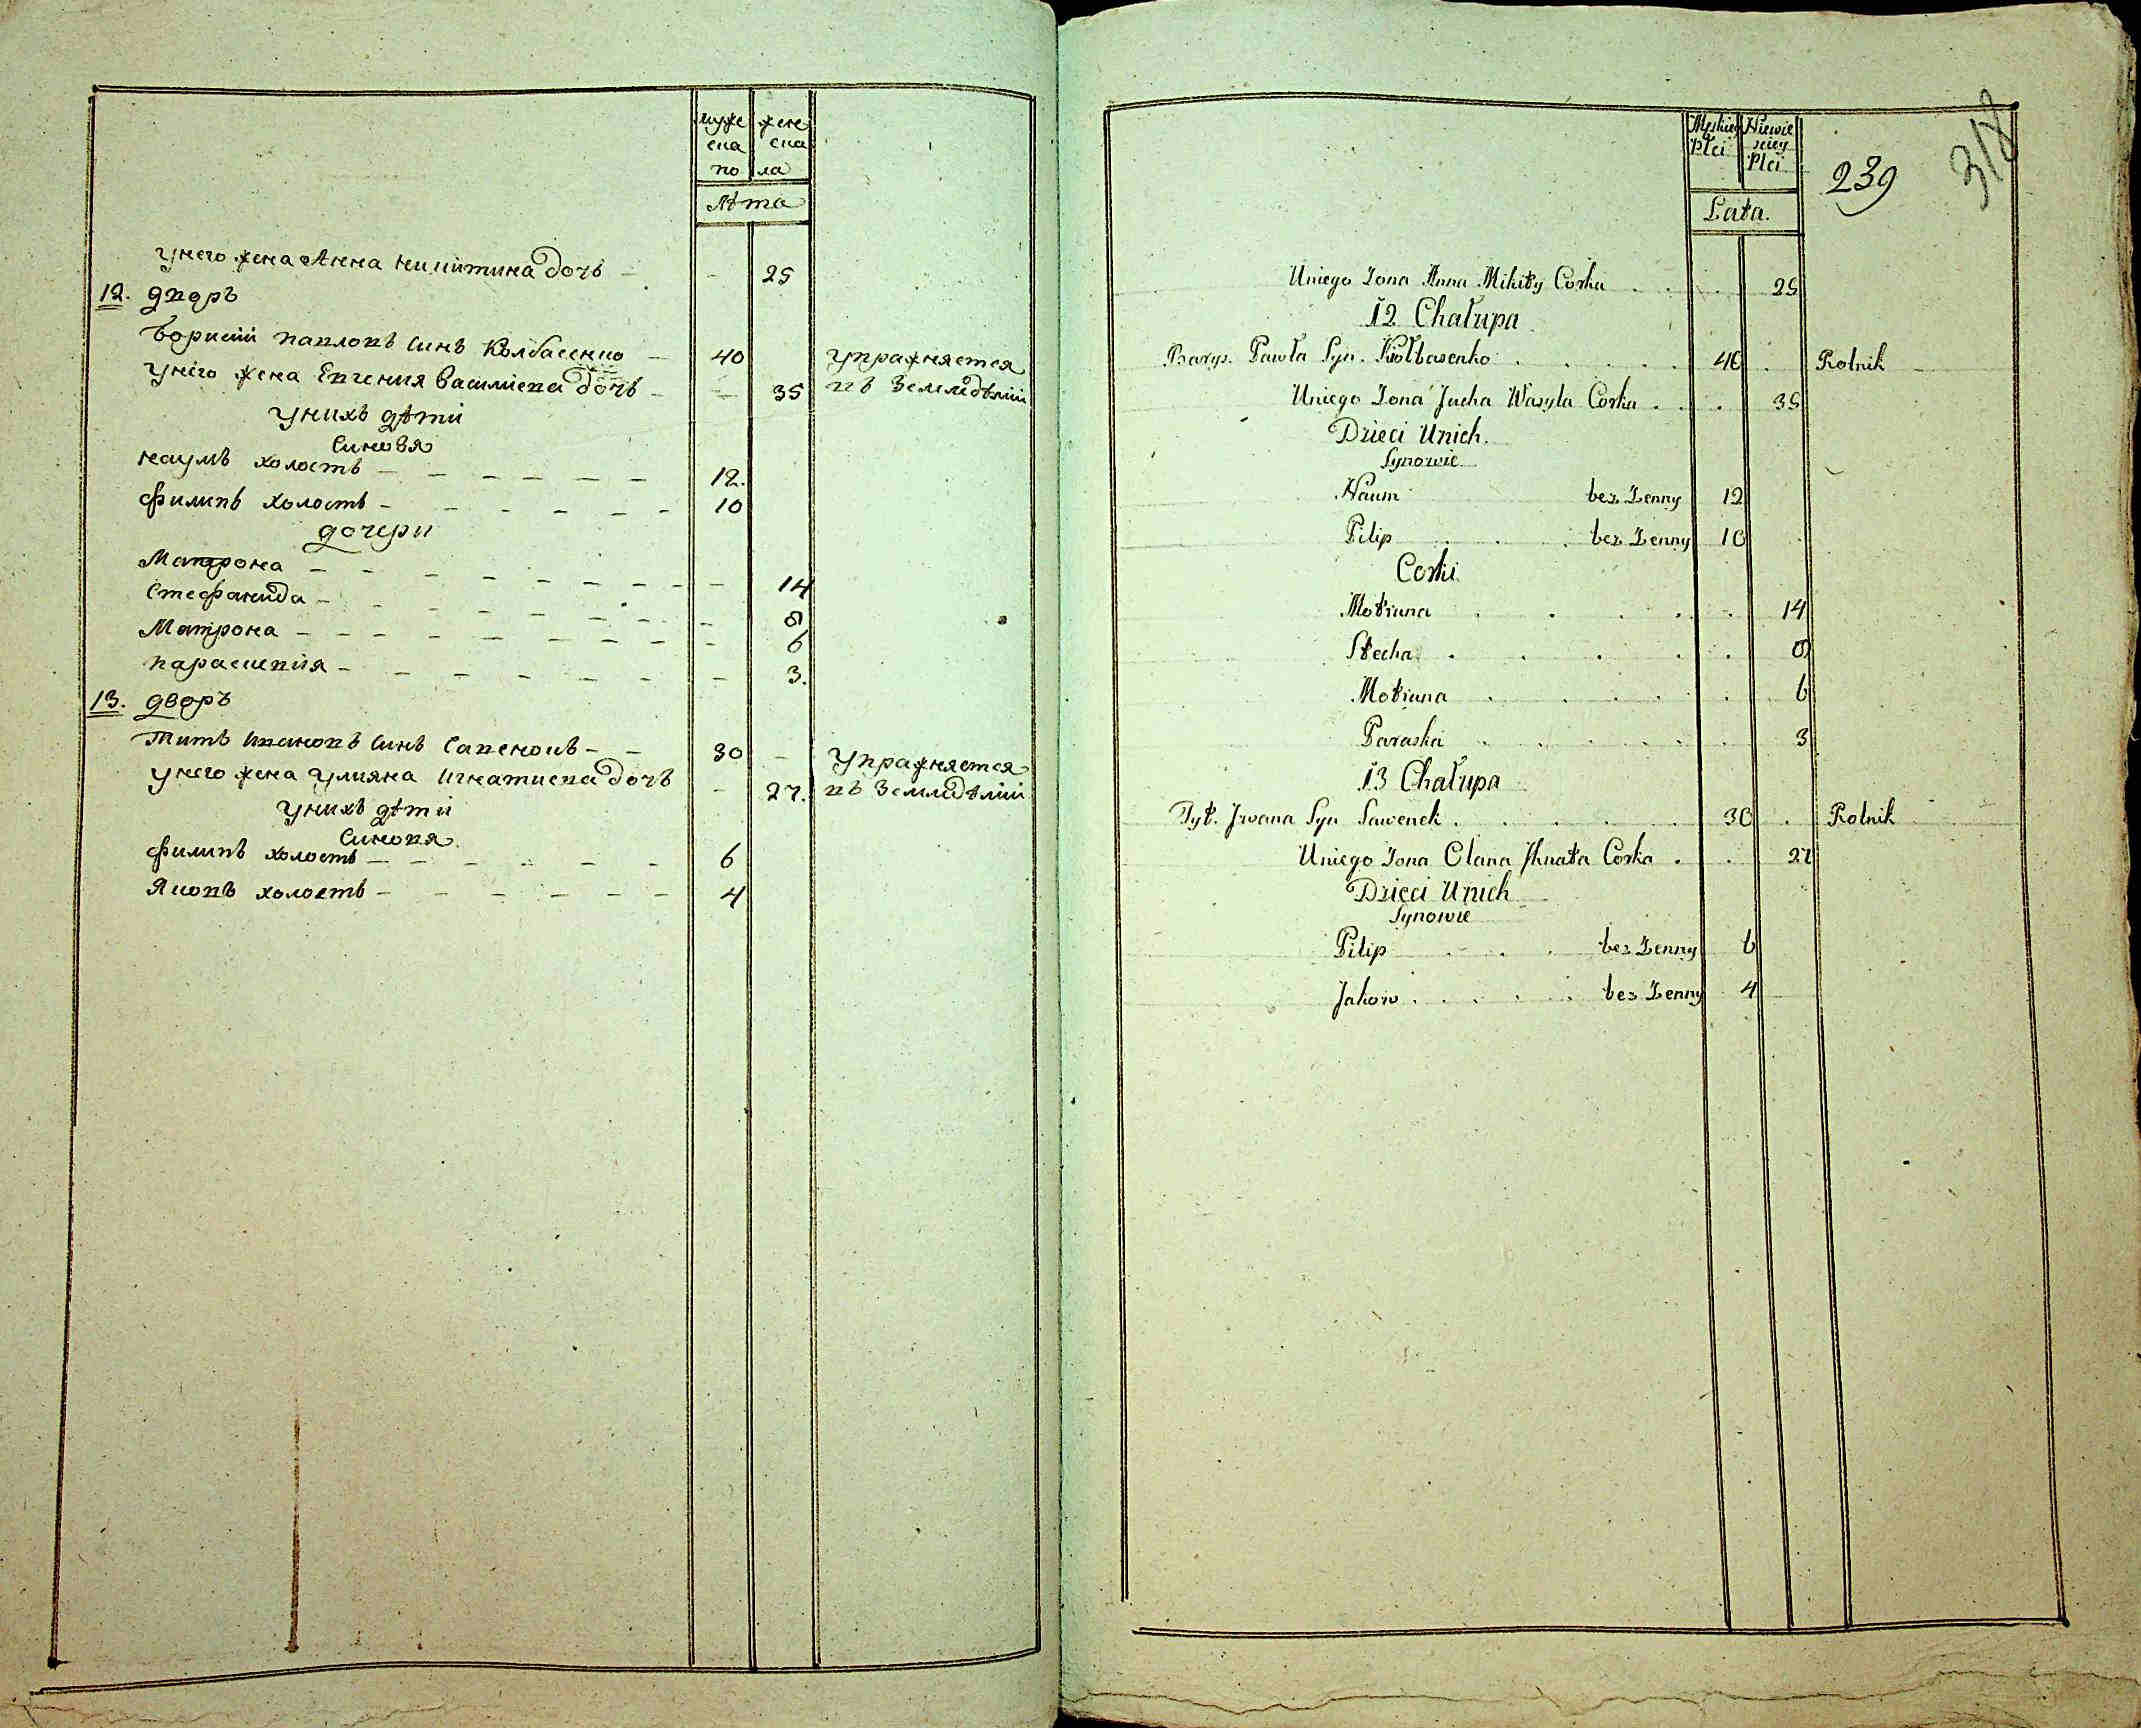 муже жене
ска ска
по ла
Лѣта
унего жена Анна никитина дочь - - 25
12. дворъ
Борисъ павловъ синъ Колбасенко - 40 упражняется
унего жена Евгения Василиева дочь - - 35 въ Земледѣлии
унихъ дѣти
Синовя
наумъ холостъ - - - - - - 12.
филипъ холостъ - - - - - - 10
дочери
Матрона - - - - - - - - 14
Стефанида - - - - - - - 8
Матрона - - - - - - - - 6
параскевия - - - - - - - 3.
13. дворъ
Титъ ивановъ синъ Савенокъ - - 30 - упражняется
унего жена улияна игнатиева дочь - 27. въ Земледѣлии
унихъ дѣти
Синовя
филипъ холостъ - - - - - - 6
Яковъ холостъ - - - - - - 4
318
239
Męskiey Niewie
Płci sciey
Płci
Lata.
Uniego Żona Anna Mikity Corka . . . 25
12 Chałupa
Barys. Pawła Syn. Kołbasenko . . . . . 40 . Rolnik
Uniego Żona Jucha Wasyla Corka . . . 35
Dzieci Unich.
Synowie
Naum bez Żenny 12
Pilip . . . bez Żenny 10 .
Corki
Motruna . . . . . 14
Stecha . . . . . 8
Motruna . . . . . 6
Paraska . . . . . . 3
13 Chałupa
Tyt. Jwana Syn Sawenek . . . . . 30 . Rolnik
Uniego Żona Ulana Jhnata Corka . . 27
Dzieci Unich
Synowie
Pilip . . . bez Żenny 6
Jakow . . . . . bez Żenny 4